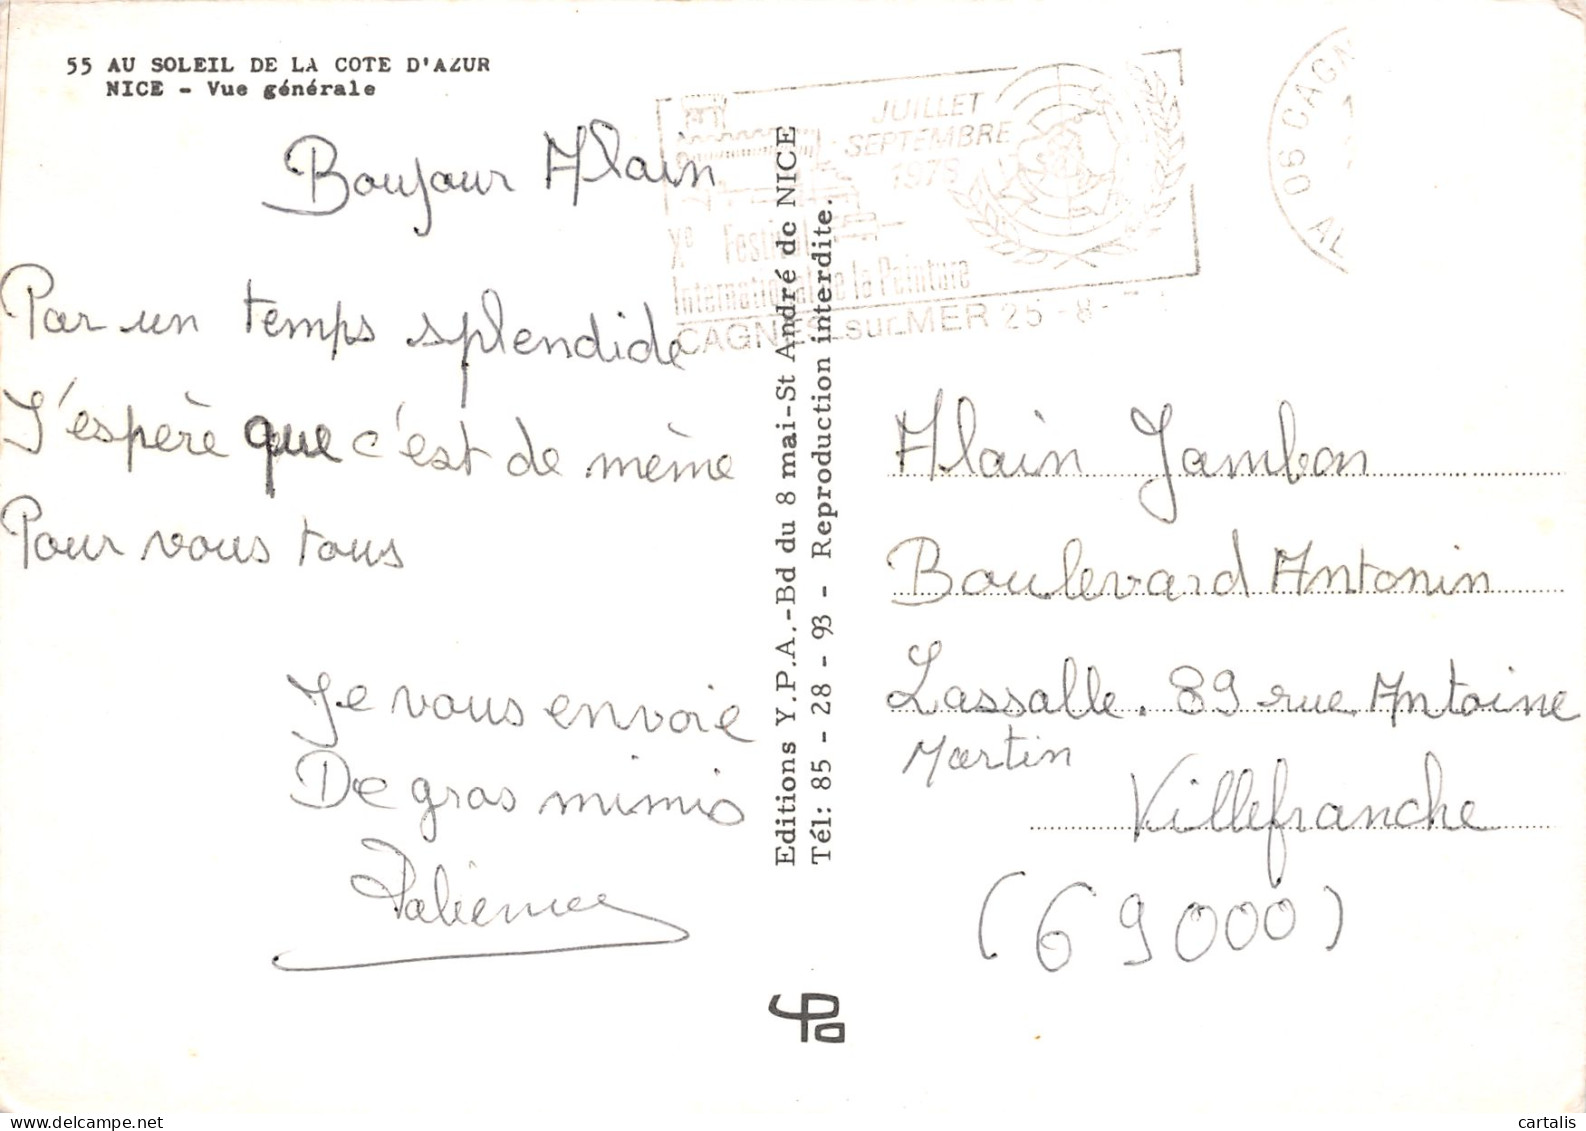 55 AU SOLEIL DE LA COTE D'AZUR
NICE - Vue générale
JUILLET
SEPTEMBRE
Xe Festival
International de la Peinture
CAGNES sur MER 25 - 8 -
06 CAGN
AL
Bonjour Alain
Par un temps splendide
J'espère que c'est de même
Pour vous tous
Je vous envoie
De gros mimis
Editions Y.P.A.-Bd du 8 mai-St André de NICE
Tél: 85 - 28 - 93 - Reproduction interdite.
Alain Jambon
Boulevard Antonin
Lassalle. 89 rue Antoine
Martin
Villefranche
(69000)
cartalis